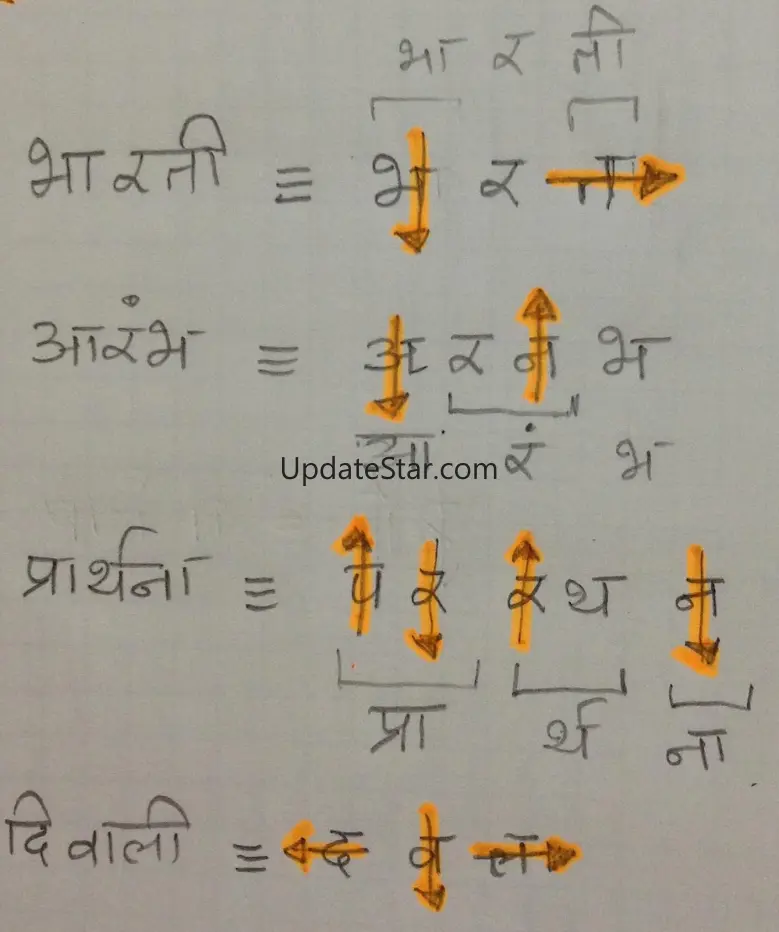 भा र ती
भारती ≡ भ र त
आरंभ ≡ अ र न भ
आ रं भ
UpdateStar.com
प्रार्थना ≡ प र र थ न
प्रा र्थ ना
दिवाली ≡ द व ल